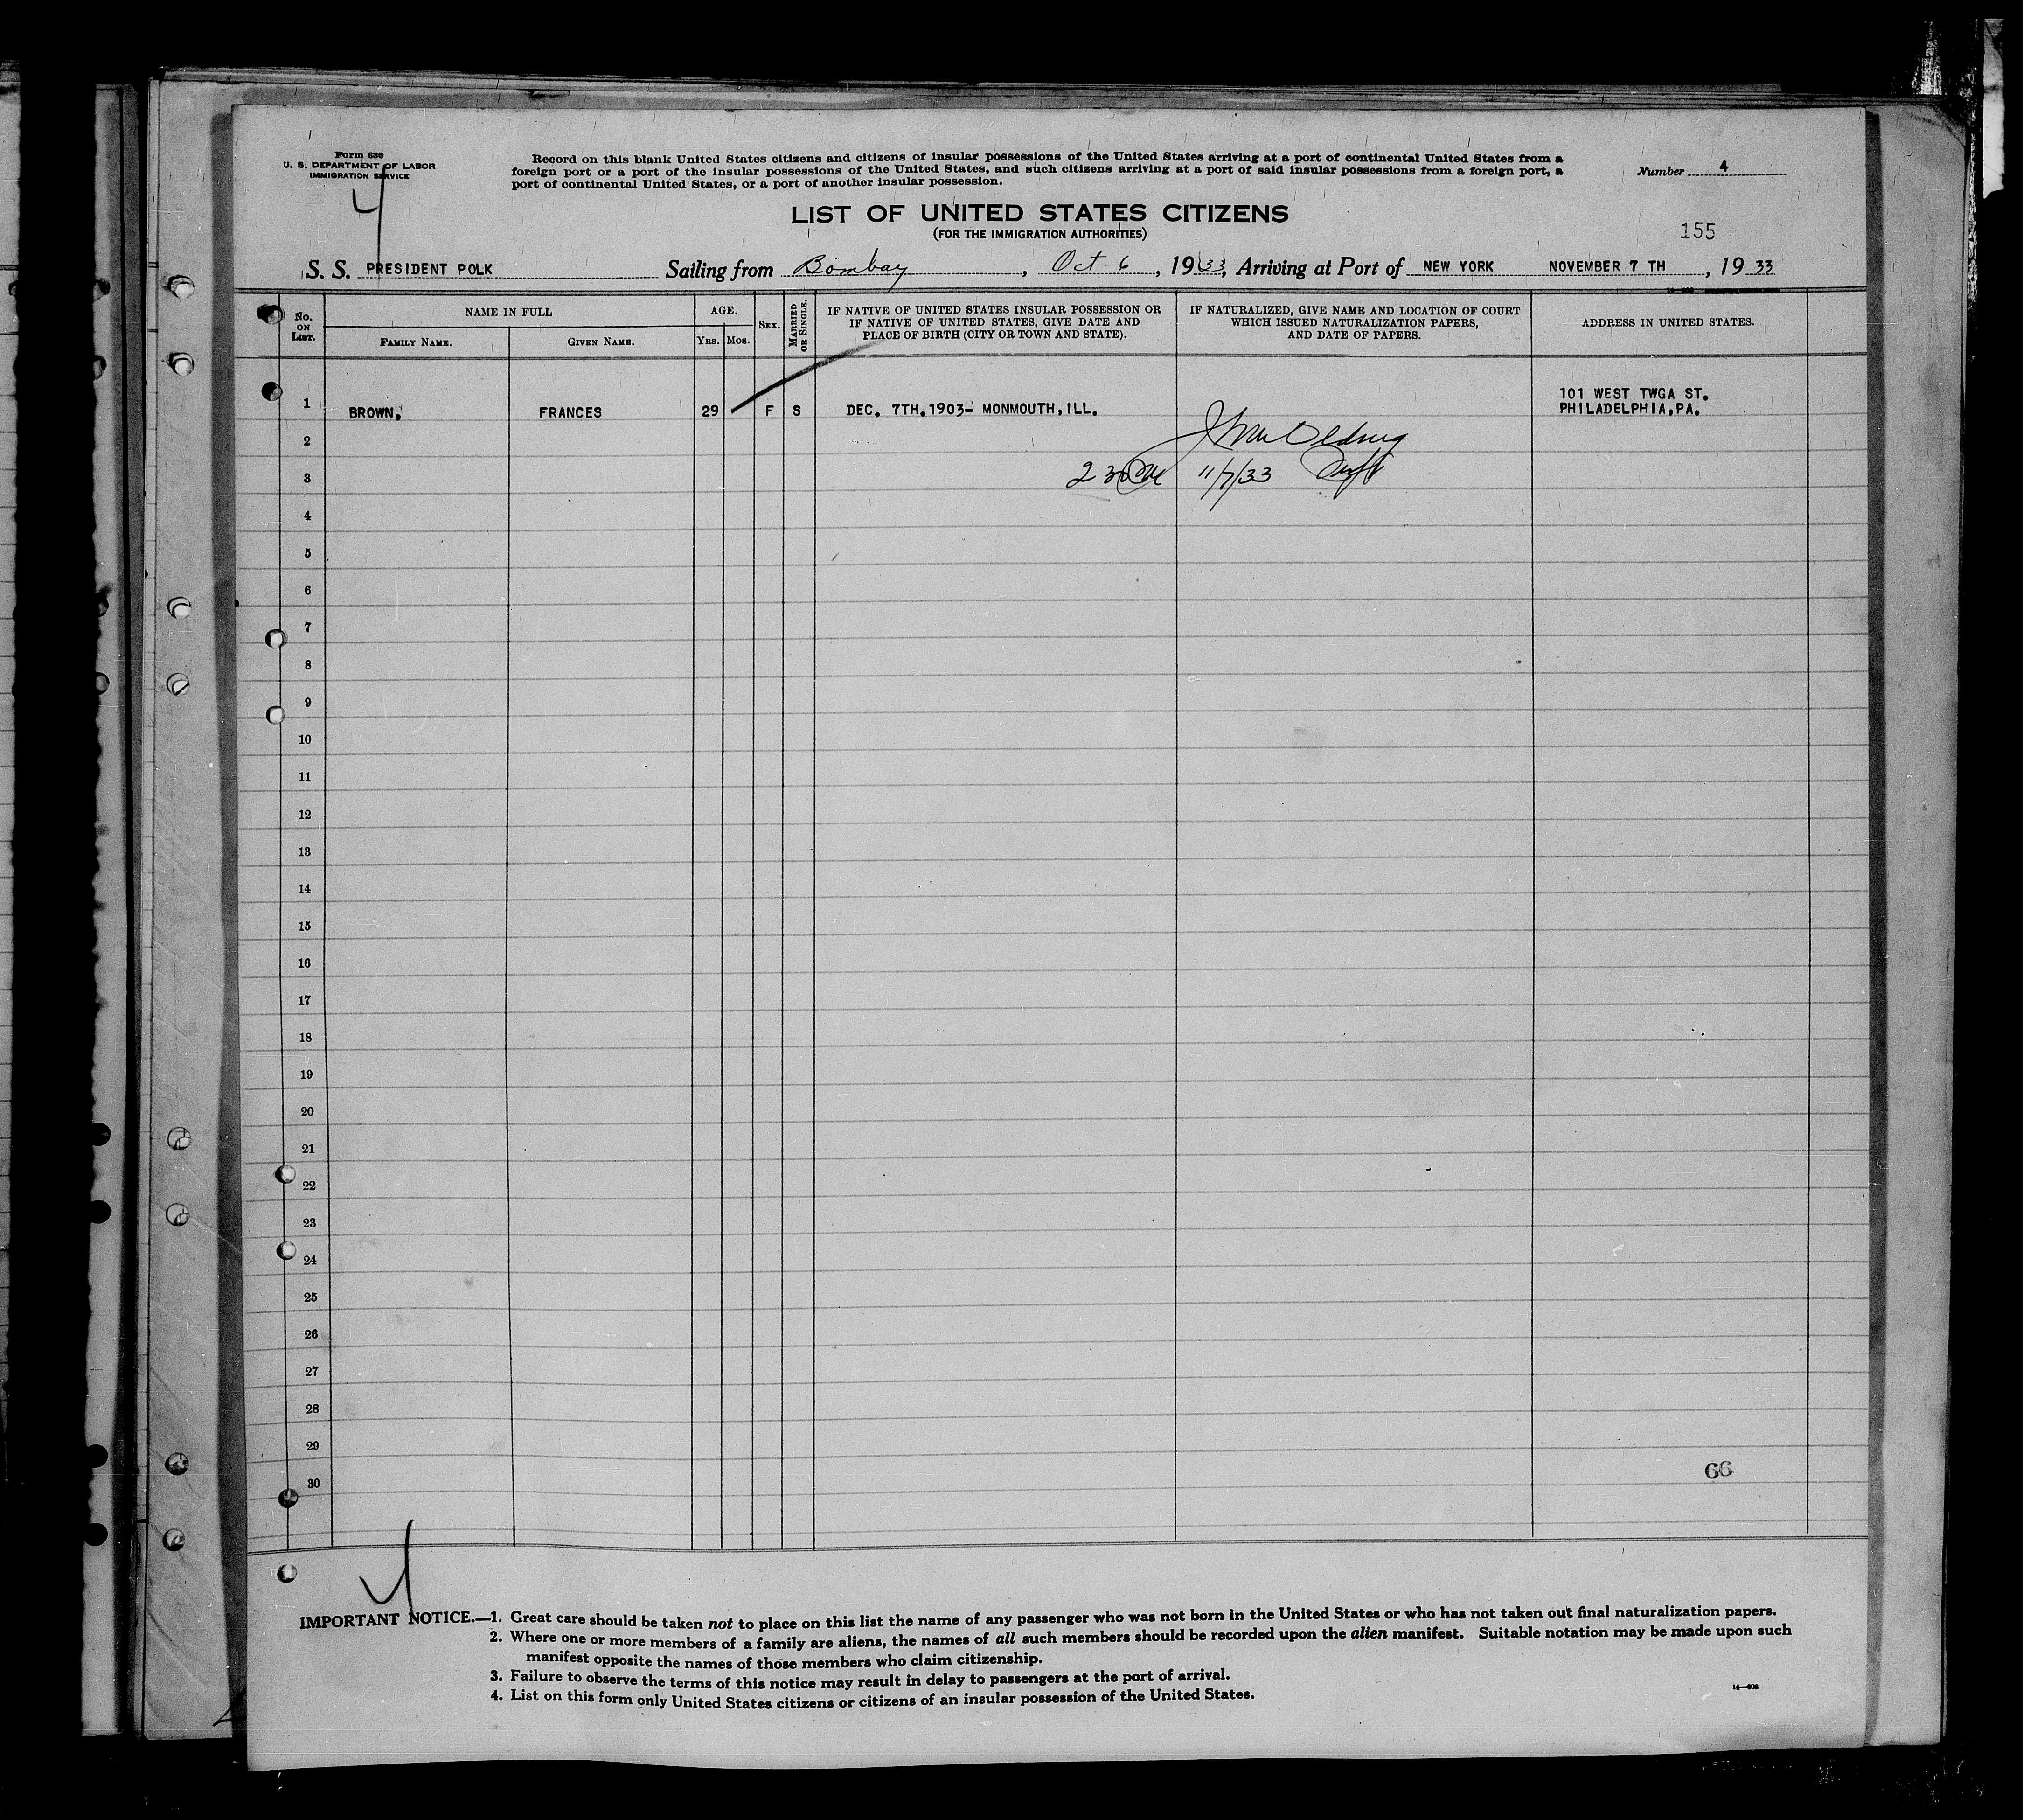 Form 630
U. S. DEPARTMENT OF LABOR
IMMIGRATION SERVICE
4
Record on this blank United States citizens and citizens of insular possessions of the United States arriving at a port of continental United States from a
foreign port or a port of the insular possessions of the United States, and such citizens arriving at a port of said insular possessions from a foreign port, a
port of continental United States, or a port of another insular possession.
Number 4
LIST OF UNITED STATES CITIZENS
(FOR THE IMMIGRATION AUTHORITIES)
155
S. S. PRESIDENT POLK Sailing from Bombay, Oct 6, 1933, Arriving at Port of NEW YORK NOVEMBER 7 TH, 1933
No. ON LIST.
NAME IN FULL
FAMILY NAME.
GIVEN NAME.
AGE.
YRS. MOS.
SEX.
MARRIED OR SINGLE.
IF NATIVE OF UNITED STATES INSULAR POSSESSION OR
IF NATIVE OF UNITED STATES, GIVE DATE AND
PLACE OF BIRTH (CITY OR TOWN AND STATE).
IF NATURALIZED, GIVE NAME AND LOCATION OF COURT
WHICH ISSUED NATURALIZATION PAPERS,
AND DATE OF PAPERS.
ADDRESS IN UNITED STATES.
1 BROWN, FRANCES 29 F S DEC. 7TH.1903- MONMOUTH,ILL. 101 WEST TWGA ST.
PHILADELPHIA,PA.
2
3 11/7/33
4
5
6
7
8
9
10
11
12
13
14
15
16
17
18
19
20
21
22
23
24
25
26
27
28
29
30
66
IMPORTANT NOTICE.—1. Great care should be taken not to place on this list the name of any passenger who was not born in the United States or who has not taken out final naturalization papers.
2. Where one or more members of a family are aliens, the names of all such members should be recorded upon the alien manifest. Suitable notation may be made upon such
manifest opposite the names of those members who claim citizenship.
3. Failure to observe the terms of this notice may result in delay to passengers at the port of arrival.
4. List on this form only United States citizens or citizens of an insular possession of the United States.
14—608